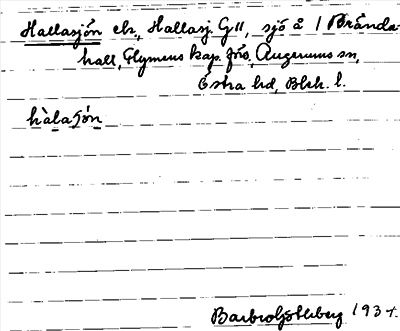 Hallasjön el., Hallasj. G11, sjö å 1 Brända-
hall, Flymens kap. förs., Augerums sn,
Östra hd, Blek. l.
hàlaṣö́n
1934.